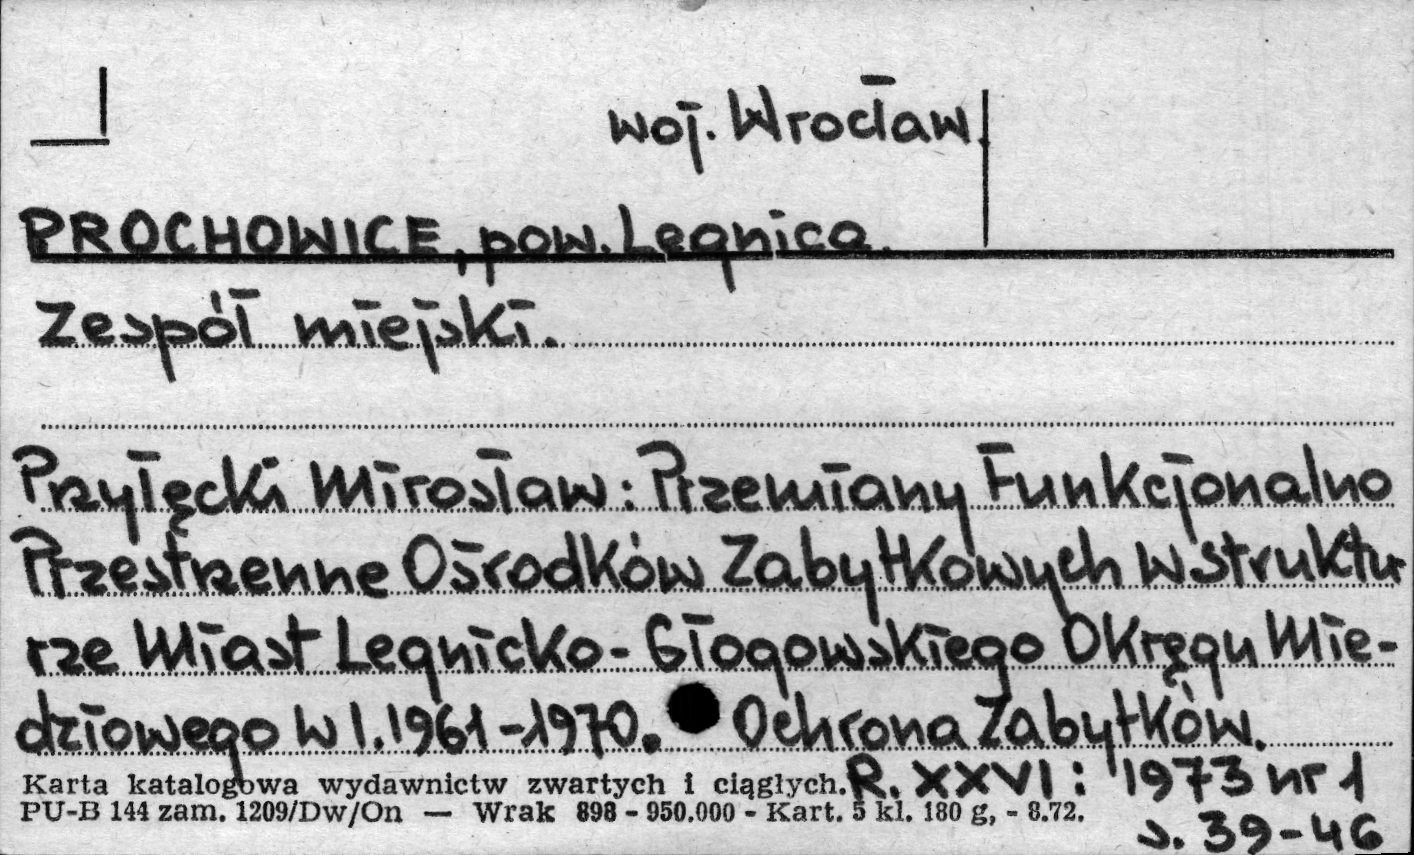 woj. Wrocław.
PROCHOWICE, pow. Legnica.
Zespół miejski.
Przyłęcki Mirosław: Przemiany Funkcjonalno
Przestrzenne Ośrodków Zabytkowych w struktu
rze Miast Legnicko-Głogowskiego Okręgu Mie-
dziowego w l. 1961-1970. Ochrona Zabytków.
Karta katalogowa wydawnictw zwartych i ciągłych. R. XXVI: 1973 nr 1
PU-B 144 zam. 1209/Dw/On — Wrak 898 - 950.000 - Kart. 5 kl. 180 g, - 8.72.
s. 39-46